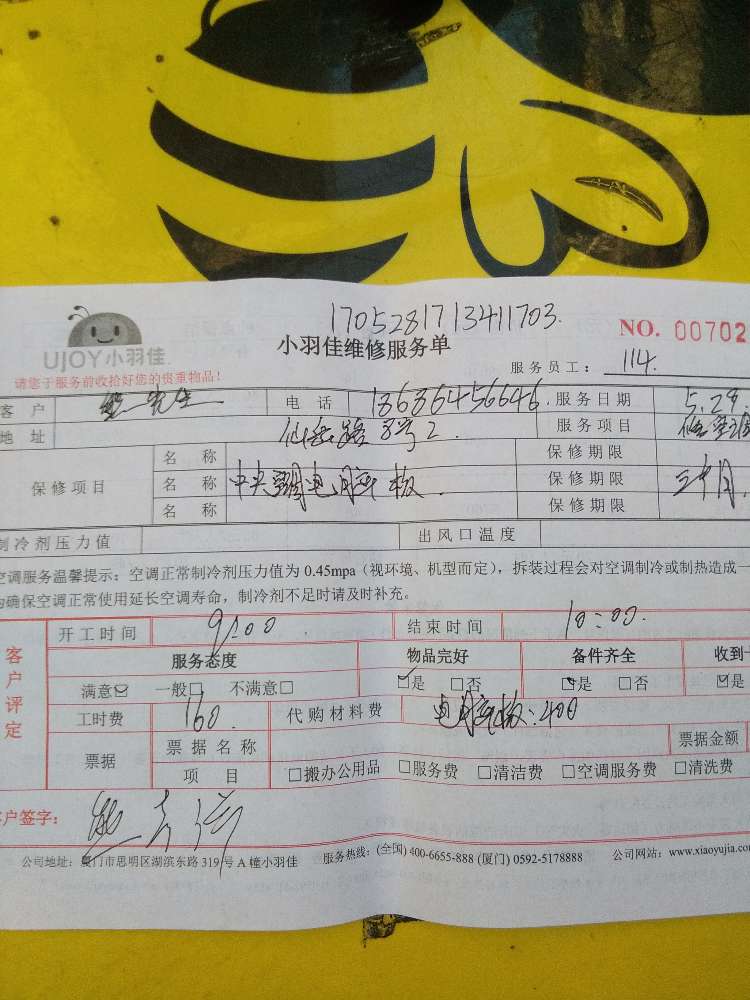 1705281713411703.
UJOY小羽佳
小羽佳维修服务单
NO. 00702
请您于服务前收拾好您的贵重物品！
服务员工： 114.
客 户 熊先生 电 话 13636456646. 服务日期 5.29
地 址 仙岳路 8号2. 服务项目
保修项目 名 称 保修期限
名 称 中央空调电脑板. 保修期限 三个月.
名 称 保修期限
制冷剂压力值 出风口温度
空调服务温馨提示：空调正常制冷剂压力值为 0.45mpa（视环境、机型而定），拆装过程会对空调制冷或制热造成一
为确保空调正常使用延长空调寿命，制冷剂不足时请及时补充。
客户评定
开工时间 9:00 结束时间 10:00.
服务态度 物品完好 备件齐全 收到一
满意☑ 一般□ 不满意□ ☑是 □否 ☑是 □否 ☑是
工时费 160. 代购材料费 电脑板：400
票据 票据名称 票据金额
项 目 □搬办公用品 □服务费 □清洁费 □空调服务费 □清洗费
客户签字：
公司地址：厦门市思明区湖滨东路 319 号 A 幢小羽佳 服务热线：(全国) 400-6655-888 (厦门) 0592-5178888 公司网站：www.xiaoyujia.com